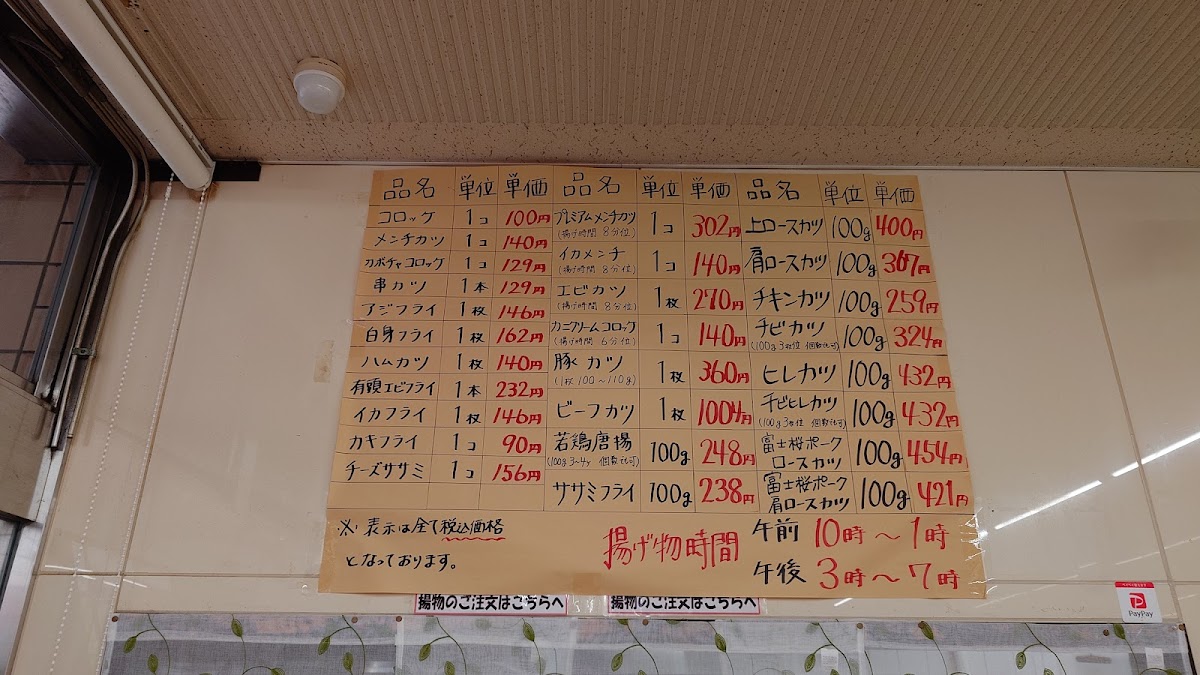 品名 単位 単価
コロッケ 1コ 100円
メンチカツ 1コ 140円
カボチャコロッケ 1コ 129円
串カツ 1本 129円
アジフライ 1枚 146円
白身フライ 1枚 162円
ハムカツ 1枚 140円
有頭エビフライ 1本 232円
イカフライ 1枚 146円
カキフライ 1コ 90円
チーズササミ 1コ 156円
品名 単位 単価
プレミアムメンチカツ 1コ 302円
(揚げ時間 8分位)
イカメンチ 1コ 140円
(揚げ時間 8分位)
エビカツ 1枚 270円
(揚げ時間 8分位)
カニクリームコロッケ 1コ 140円
(揚げ時間 6分位)
豚カツ 1枚 360円
(1枚 100〜110g)
ビーフカツ 1枚 1004円
若鶏唐揚 100g 248円
(100g 3〜4ヶ 個数でも可)
ササミフライ 100g 238円
品名 単位 単価
上ロースカツ 100g 400円
肩ロースカツ 100g 367円
チキンカツ 100g 259円
チビカツ 100g 324円
(100g 3枚位 個数でも可)
ヒレカツ 100g 432円
チビヒレカツ 100g 432円
(100g 3枚位 個数でも可)
富士桜ポーク
ロースカツ 100g 454円
富士桜ポーク
肩ロースカツ 100g 421円
※表示は全て税込価格
となっております。
揚げ物時間
午前 10時〜1時
午後 3時〜7時
揚物のご注文はこちらへ
揚物のご注文はこちらへ
PayPay